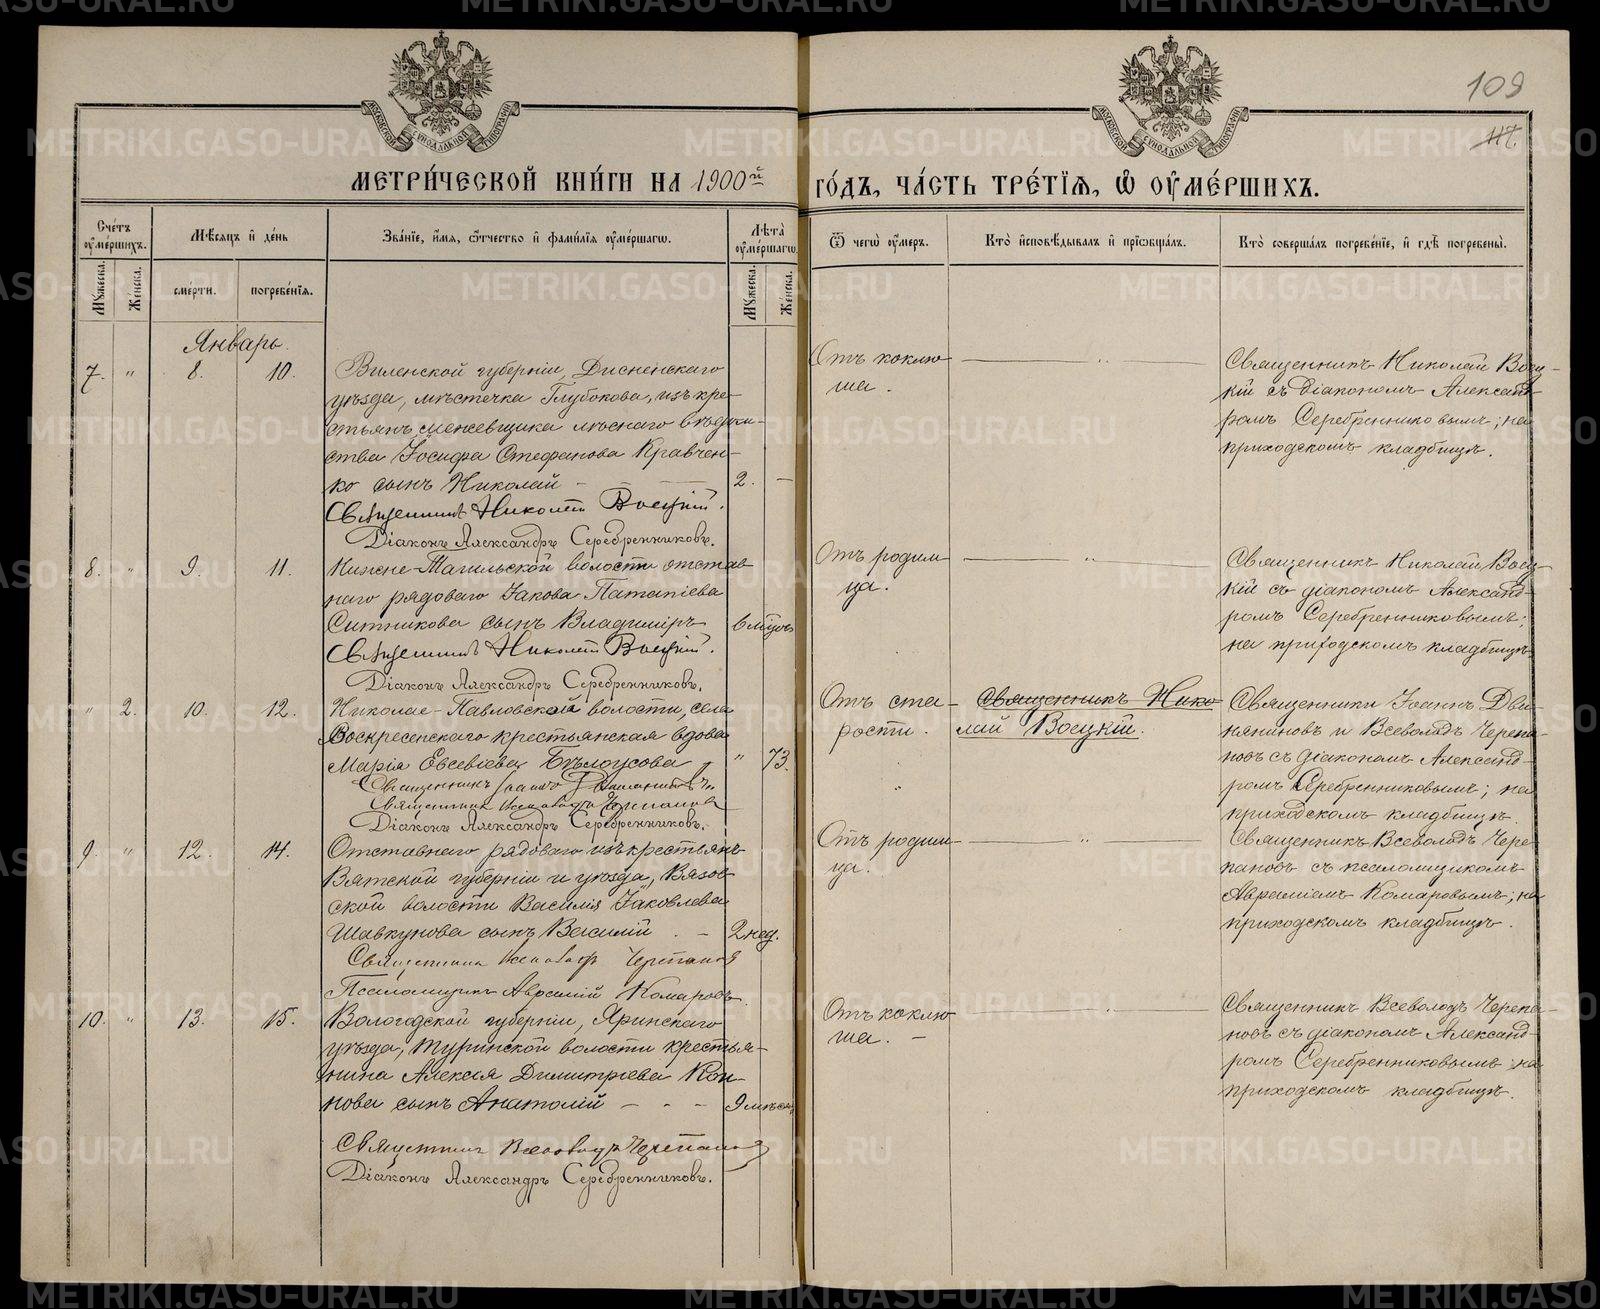 109
117.
МОСКОВСКОЙ СѴНОДАЛЬНОЙ ТИПОГРАФІИ
МОСКОВСКОЙ СѴНОДАЛЬНОЙ ТИПОГРАФІИ
МЕТРИ́ЧЕСКОЙ КНИ́ГИ НА 1900й ГО́ДЪ, ЧА́СТЬ ТРЕ́ТІѦ, Ѡ҆ ОУ҆МЕ́РШИХЪ.
Сче́тъ оу҆ме́ршихъ.
Мѣ́сяцъ и҆ де́нь
Зва́нїе, и҆́мѧ, ѻ҆́тчество и҆ фами́лїѧ оу҆ме́ршагѡ.
Лѣ́та оу҆ме́ршагѡ.
Ѿ чегѡ̀ оу҆́меръ.
Кто̀ и҆сповѣ́дывалъ и҆ прїѡбща́лъ.
Кто̀ соверша́лъ погребе́нїе, и҆ гдѣ̀ погребены̀.
Мꙋ́жеска.
Же́нска.
сме́рти.
погребе́нїѧ.
Мꙋ́жеска.
Же́нска.
Январь.
7. " 8. 10.
Виленской губерніи, Дисненскаго
уѣзда, мѣстечка Глубокова, изъ кре-
стьянъ, межевщика лѣснаго вѣдом-
ства Іосифа Стефанова Кравчен-
ко сынъ Николай – – 2. –
Священникъ Николай Воецкій.
Діаконъ Александръ Серебренниковъ.
Отъ коклю-
ша.
"
Священникъ Николай Воец-
кій съ діакономъ Александ-
ромъ Серебренниковымъ; на
приходскомъ кладбищѣ.
8. " 9. 11.
Нижне-Тагильской волости отстав-
наго рядоваго Іакова Патапіева
Ситникова сынъ Владиміръ 6 мѣсцъ
Священникъ Николай Воецкій.
Діаконъ Александръ Серебренниковъ.
Отъ родим-
ца.
"
Священникъ Николай Воец-
кій съ діакономъ Александ-
ромъ Серебренниковымъ;
на приходскомъ кладбищѣ.
" 2. 10. 12.
Николае-Павловской волости, села
Воскресенскаго крестьянская вдова
Марія Евсевіева Бѣлоусова " 73.
Священникъ Іоаннъ Двиняниновъ
Священникъ Всеволодъ Черепановъ
Діаконъ Александръ Серебренниковъ.
Отъ ста-
рости.
Священникъ Нико-
лай Воецкій.
Священники Іоаннъ Дви-
няниновъ и Всеволодъ Черепа-
новъ съ діакономъ Александ-
ромъ Серебренниковымъ; на
приходскомъ кладбищѣ.
9. " 12. 14.
Отставнаго рядоваго изъ крестьянъ
Вятской губерніи и уѣзда, Вязов-
ской волости Василія Іаковлева
Шавкунова сынъ Василій. – 2 нед.
Священникъ Всеволодъ Черепановъ
Псаломщикъ Авраамій Комаровъ.
Отъ родим-
ца.
"
Священникъ Всеволодъ Чере-
пановъ съ псаломщикомъ
Авраміемъ Комаровымъ; на
приходскомъ кладбищѣ.
10. " 13. 15.
Вологодской губерніи, Яринскаго
уѣзда, Туринской волости крестья-
нина Алексія Димитріева Кон-
нова сынъ Анатолій – – – 9 мѣсец.
Священникъ Всеволодъ Черепановъ
Діаконъ Александръ Серебренниковъ.
Отъ коклю-
ша. –
"
Священникъ Всеволодъ Черепа-
новъ съ діакономъ Александ-
ромъ Серебренниковымъ на
приходскомъ кладбищѣ.
METRIKI.GASO-URAL.RU